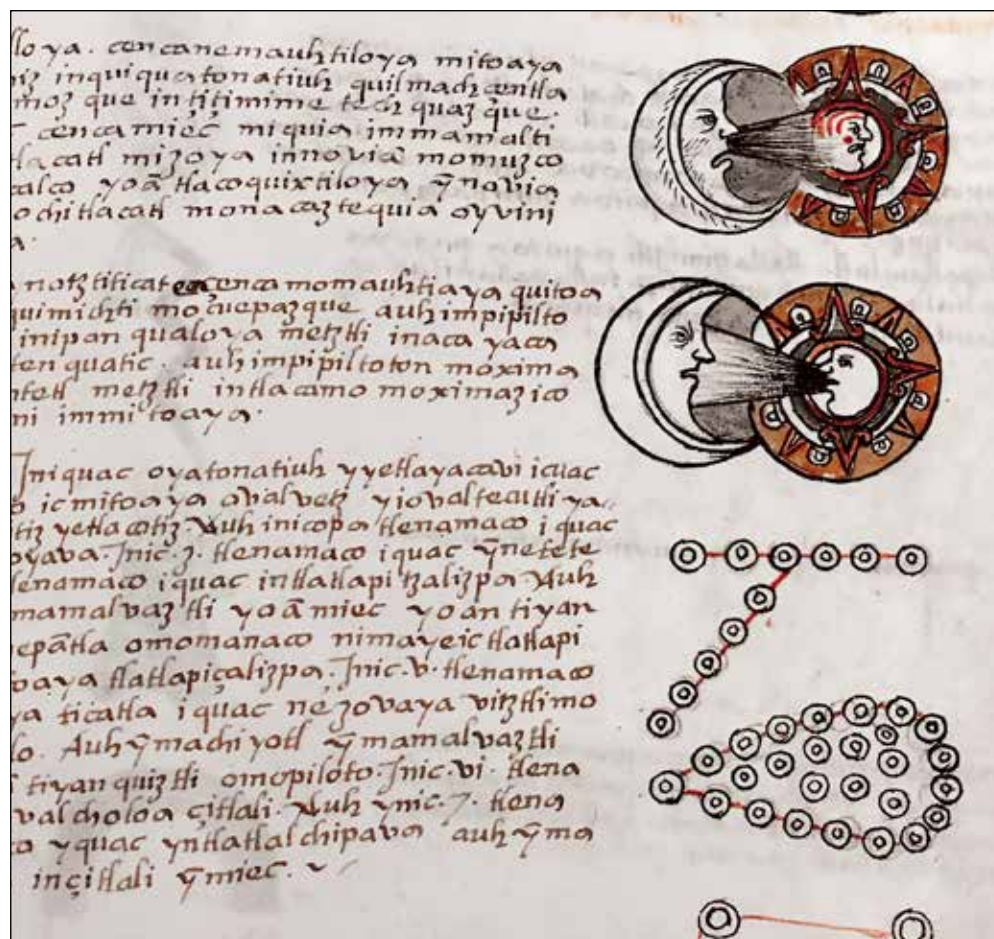 lloya. cencanemauhtiloya mitoaya
inquiquatonatiuh quilmach centla
moz que intitimime techquazque.
cencamiec miquia immamalti
tlacatl mizoya innovia momuzco
calco yoā tlacoquixtiloya ȳnovia
ochitlacatl monacaztequia oyvini
a.
notztiticatca cenca momauhtiaya quitoa
quimichti mocuepazque auh impipilto
inipan qualoya metztli inaca yaca
tenquatic. auh impipiltoton moxima
ntetl metztli intlacamo moximazico
ni immitoaya.
Iniquac oyatonatiuh yyetlayacavi icuac
ic mitoaya ovalvetz yiovalteuctli ya
tiz yetlacotiz. Auh inicopa tlenamaco iquac
oyava. Inic. 3. tlenamaco iquac ȳnetete
lenamaco iquac intlatlapitzalizpa. Auh
mamalvaztli yoā miec yoan tiyan
epātla omomanaco nimayeictlatlapi
oaya tlatlapiçalizpa. Inic. v. tlenamaco
ya ticatla iquac neçovaya vitztlimo
lo. Auh ȳmachiyotl ȳmamalvaztli
tiyanquiztli omopiloto. Inic. vi. tlena
valcholoa çitlali. Auh ynic. 7. tlena
co yquac yntlatlalchipava auh ȳma
inçitlali ȳmiec.